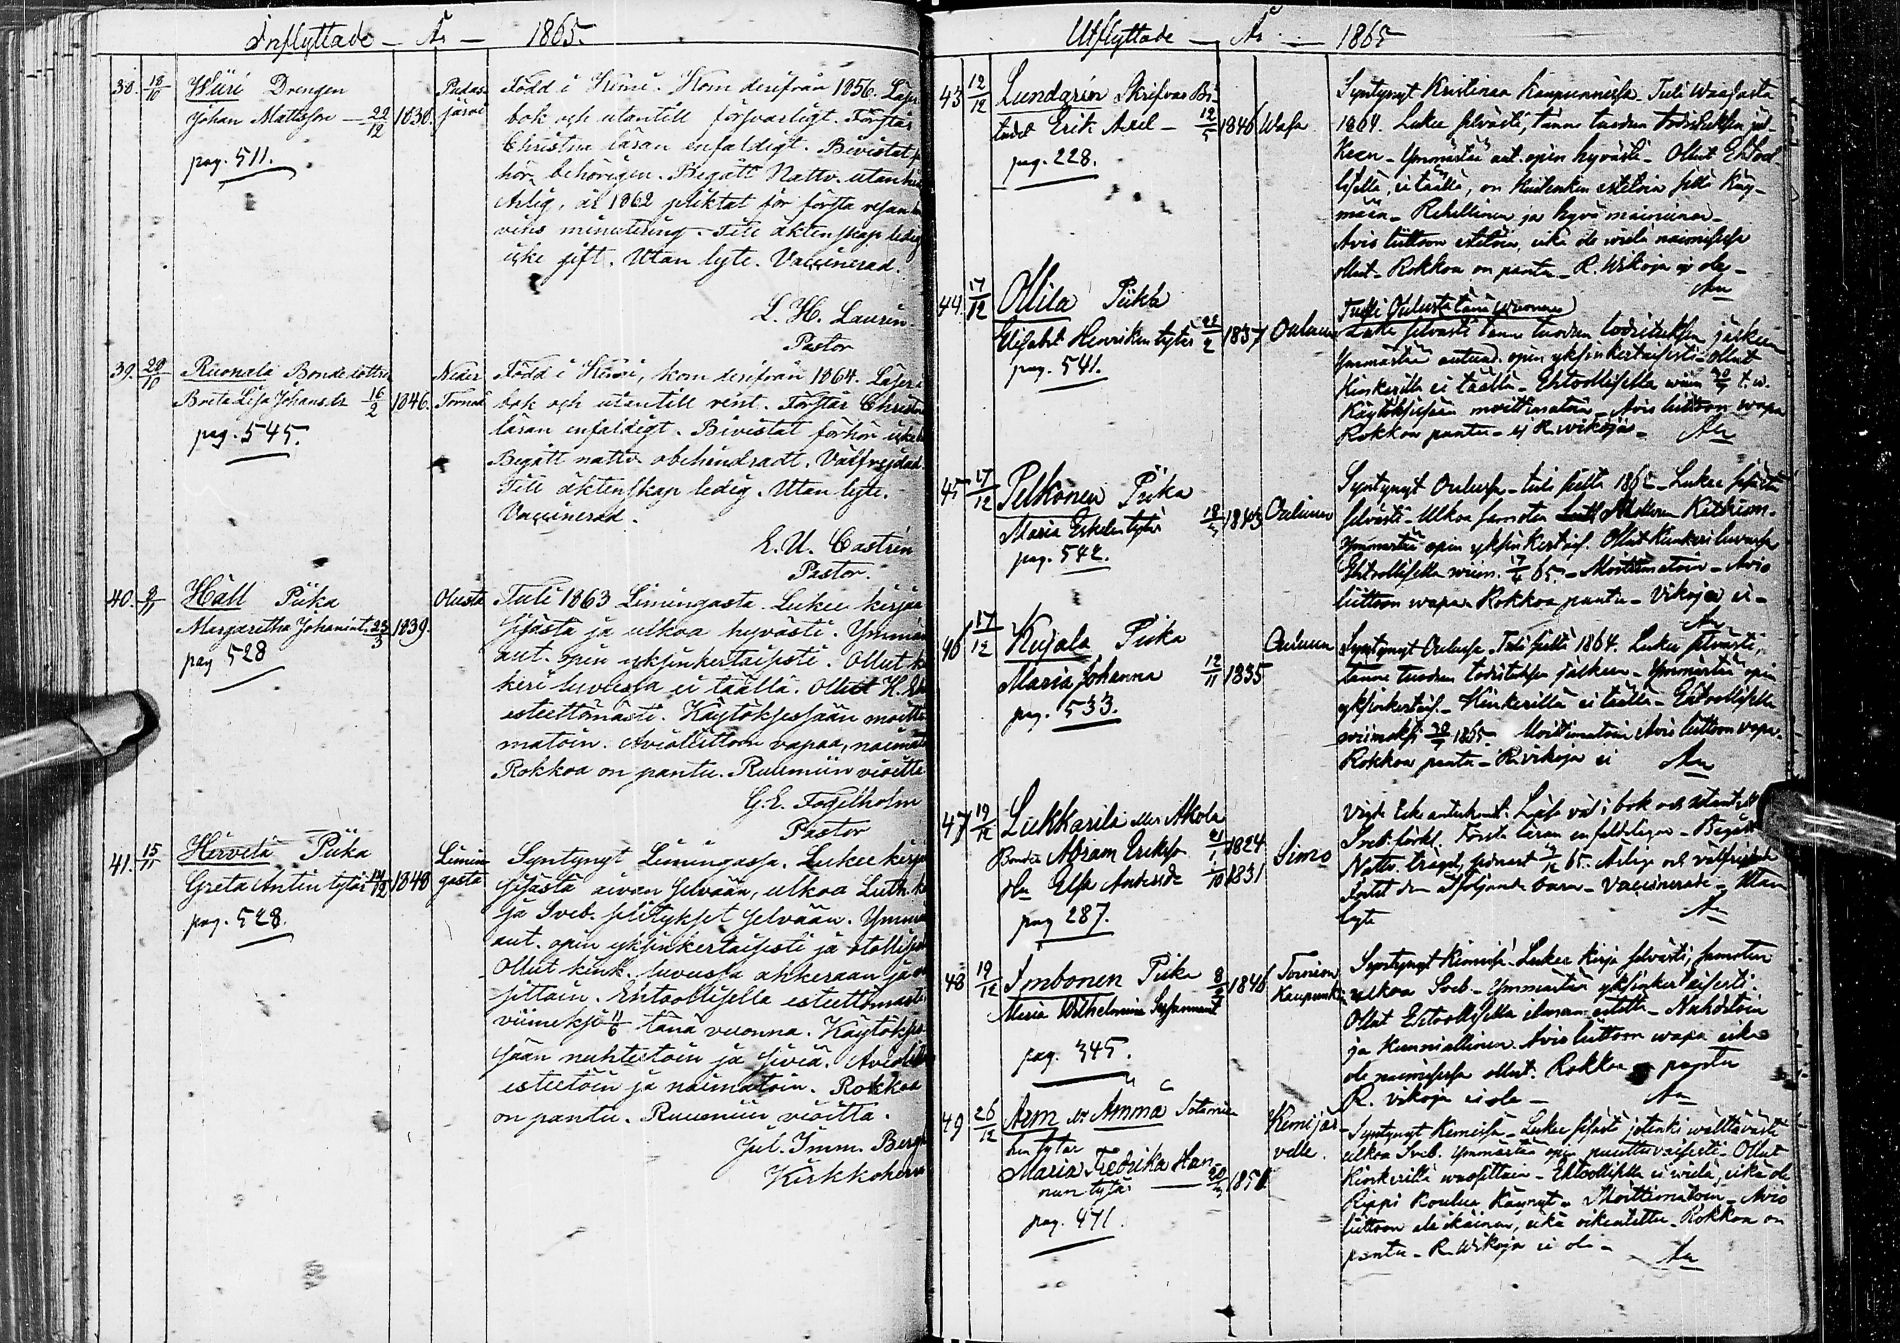 Inflyttade — År — 1865.
38. 18/10 Wiiri Drengen
Johan Mattsson — 22/12 1830.
pag. 511.
Pudas-
järvi
Född i Kemi. Kom derifrån 1856. Läser
bok och utantill försvarligt. Förstår
Christna läran enfaldigt. Bivistat
hör behörigen. Begått Nattv. utan
Ärlig, år 1862 pliktat för första resan
vins minutering. Till äktenskap ledig
icke gift. Utan lyte. Vaccinerad.
L. H. Laurin.
Pastor
39. 29/10 Ruonala Bondedotter
Breta Lisa Johansdr 16/2 1846.
pag. 545.
Neder
Torneå
Född i Kemi, kom derifrån 1864. Läser i
bok och utantill rent. Förstår Christna
läran enfaldigt. Bivistat förhör
Begått nattv. obehindradt. Välfrejdad.
Till äktenskap ledig. Utan lyte.
Vaccinerad.
E. U. Castrén
Pastor.
40. 9/11 Häll Piika
Margaretha Johanint. 23/3 1839.
pag 528
Olusta
Tuli 1863 Limingasta. Lukee kirjaa
sisästä ja ulkoa hyvästi. Ymmär
aut. opin yksinkertaisesti. Ollut
keri luvussa ei täällä. Ollut H.
esteettömästi. Käytöksessään moitti
matoin. Avioliittoon vapaa, naimat
Rokkoa on pantu. Ruumiin vioitta
G. E. Fogelholm
Pastor
41. 15/11 Hirvelä Piika
Greta Antin tytär 14/12 1848
pag. 528.
Limin
gasta
Syntynyt Limingassa. Lukee kirjaa
sisästä aivan selvään, ulkoa Luth. k
ja Sveb. selitykset selvään. Ymmä
aut. opin yksinkertaisesti ja
Ollut kink. luvussa ahkeraan ja
sittain. Ehtoollisella esteettömästi
viimeksi 11/6 tänä vuonna. Käytökses
sään nuhtetoin ja siviä. Aviol
esteetöin ja naimatoin. Rokkoa
on pantu. Ruumiin vioitta.
Jul. Imm. Bergh
Kirkkoherra
Utflyttade — År — 1865
43 12/12 Lundgrén Skrifvare Bi-
trädet Erik Axel — 12/5 1846 Wasa
pag. 228.
Syntynyt Kristinan Kaupunnissa. Tuli Waasasta
1864. Lukee selvästi, tänne tuodun todistuksen jäl-
keen — Ymmärtää aut. opin hyvästi — Ollut Ehtool-
lisella, ei täällä, on kuitenkin estetoin sillä käy-
mään — Rehellinen ja hyvä maineinen —
Avio liittoon estetoin, eikä ole wielä naimisissa
ollut — Rokkoa on pantu — R. Wikoja ej ole —
44. 17/12 Ollila Piika
Elisabet Henrikin tytär 22/2 1837 Ouluun
pag. 541.
Tulli Oulusta tänä vuonna
Lukee selvästi tänne tuodun todistuksen jälkeen
Ymmärtää autuud. opin yksinkertaisesti — Ollut
Kinkerillä ei täällä — Ehtoollisella wiim 30/7 t. w.
Käytöksessään moittimatoin — Avio liittoon wapa
Rokkoa pantu — ej R. wikoja —
45 17/12 Pelkonen Piika
Maria Erkin tytär 18/3 1843 Ouluun
pag. 542.
Syntynyt Oulussa — tuli sieltä 186 — Lukee sisästä
selvästi — Ulkoa samoten
Ymmärtää opin yksinkertais. Ollut Kinkeri luvussa
Ehtoollisella wiim. 65. — Moittimatoin — Avio
liittoon wapaa Rokkoa pantu — Vikoja ei —
46 17/12 Kujala, Piika
Maria Johanna 12/11 1835
pag. 533.
Ouluun
Syntynyt Oulussa Tuli sieltä 1864. Lukee selvästi,
tänne tuodun todistuksen jälkeen — Ymmärtää opin
yksinkertais. — Kinkerillä ei täällä — Ehtoollisella
wiimeksi 30/7 1865. Moittimatoin Avio liittoon wapa.
Rokkoa pantu — R. vikoja ei
47 19/12 Liekkarila eller Akola
Bonden Abram Eriksson 21/1 1824
Hu Elsa Andersdr 1/10 1831
pag 287.
Simo
Nattv. trägd, senast 65. Ärliga och välfrejdade
Vaccinerade — Utan
lyte
48 19/12 Imbonen Piika 8/3 1846
Maria Wilhelmina
pag. 345.
Tornion
Kaupunki
Syntynyt Kemissä. Lukee kirja selvästi, samoten
ulkoa Sveb — Ymmärtää yksinkertaisesti.
Ollut Ehtoollisella ilman estettä — Nuhdetoin
ja kunniallinen. Avio liittoon wapa eikä
ole naimisissa ollut. Rokkoa pantu
R. vikoja ei ole —
49 26/12 Arm Ämmä Sotamie
hen tytär
Maria Fredrika Han-
nun tytär — 1851
pag. 471.
Kemijär-
velle.
Syntynyt Kemissä — Lukee sisästä jotenki wälttävästi
ulkoa Sveb. Ymmärtää opin puuttuvaisesti — Ollut
Kinkerillä — Ehtoollisella ei wielä, eikä ole
Rippi Koulua käynyt — Moittimatoin — Avio
liittoon ala ikäinen, eikä oikeutettu — Rokkoa on
pantu — R. Wikoja ei ole —